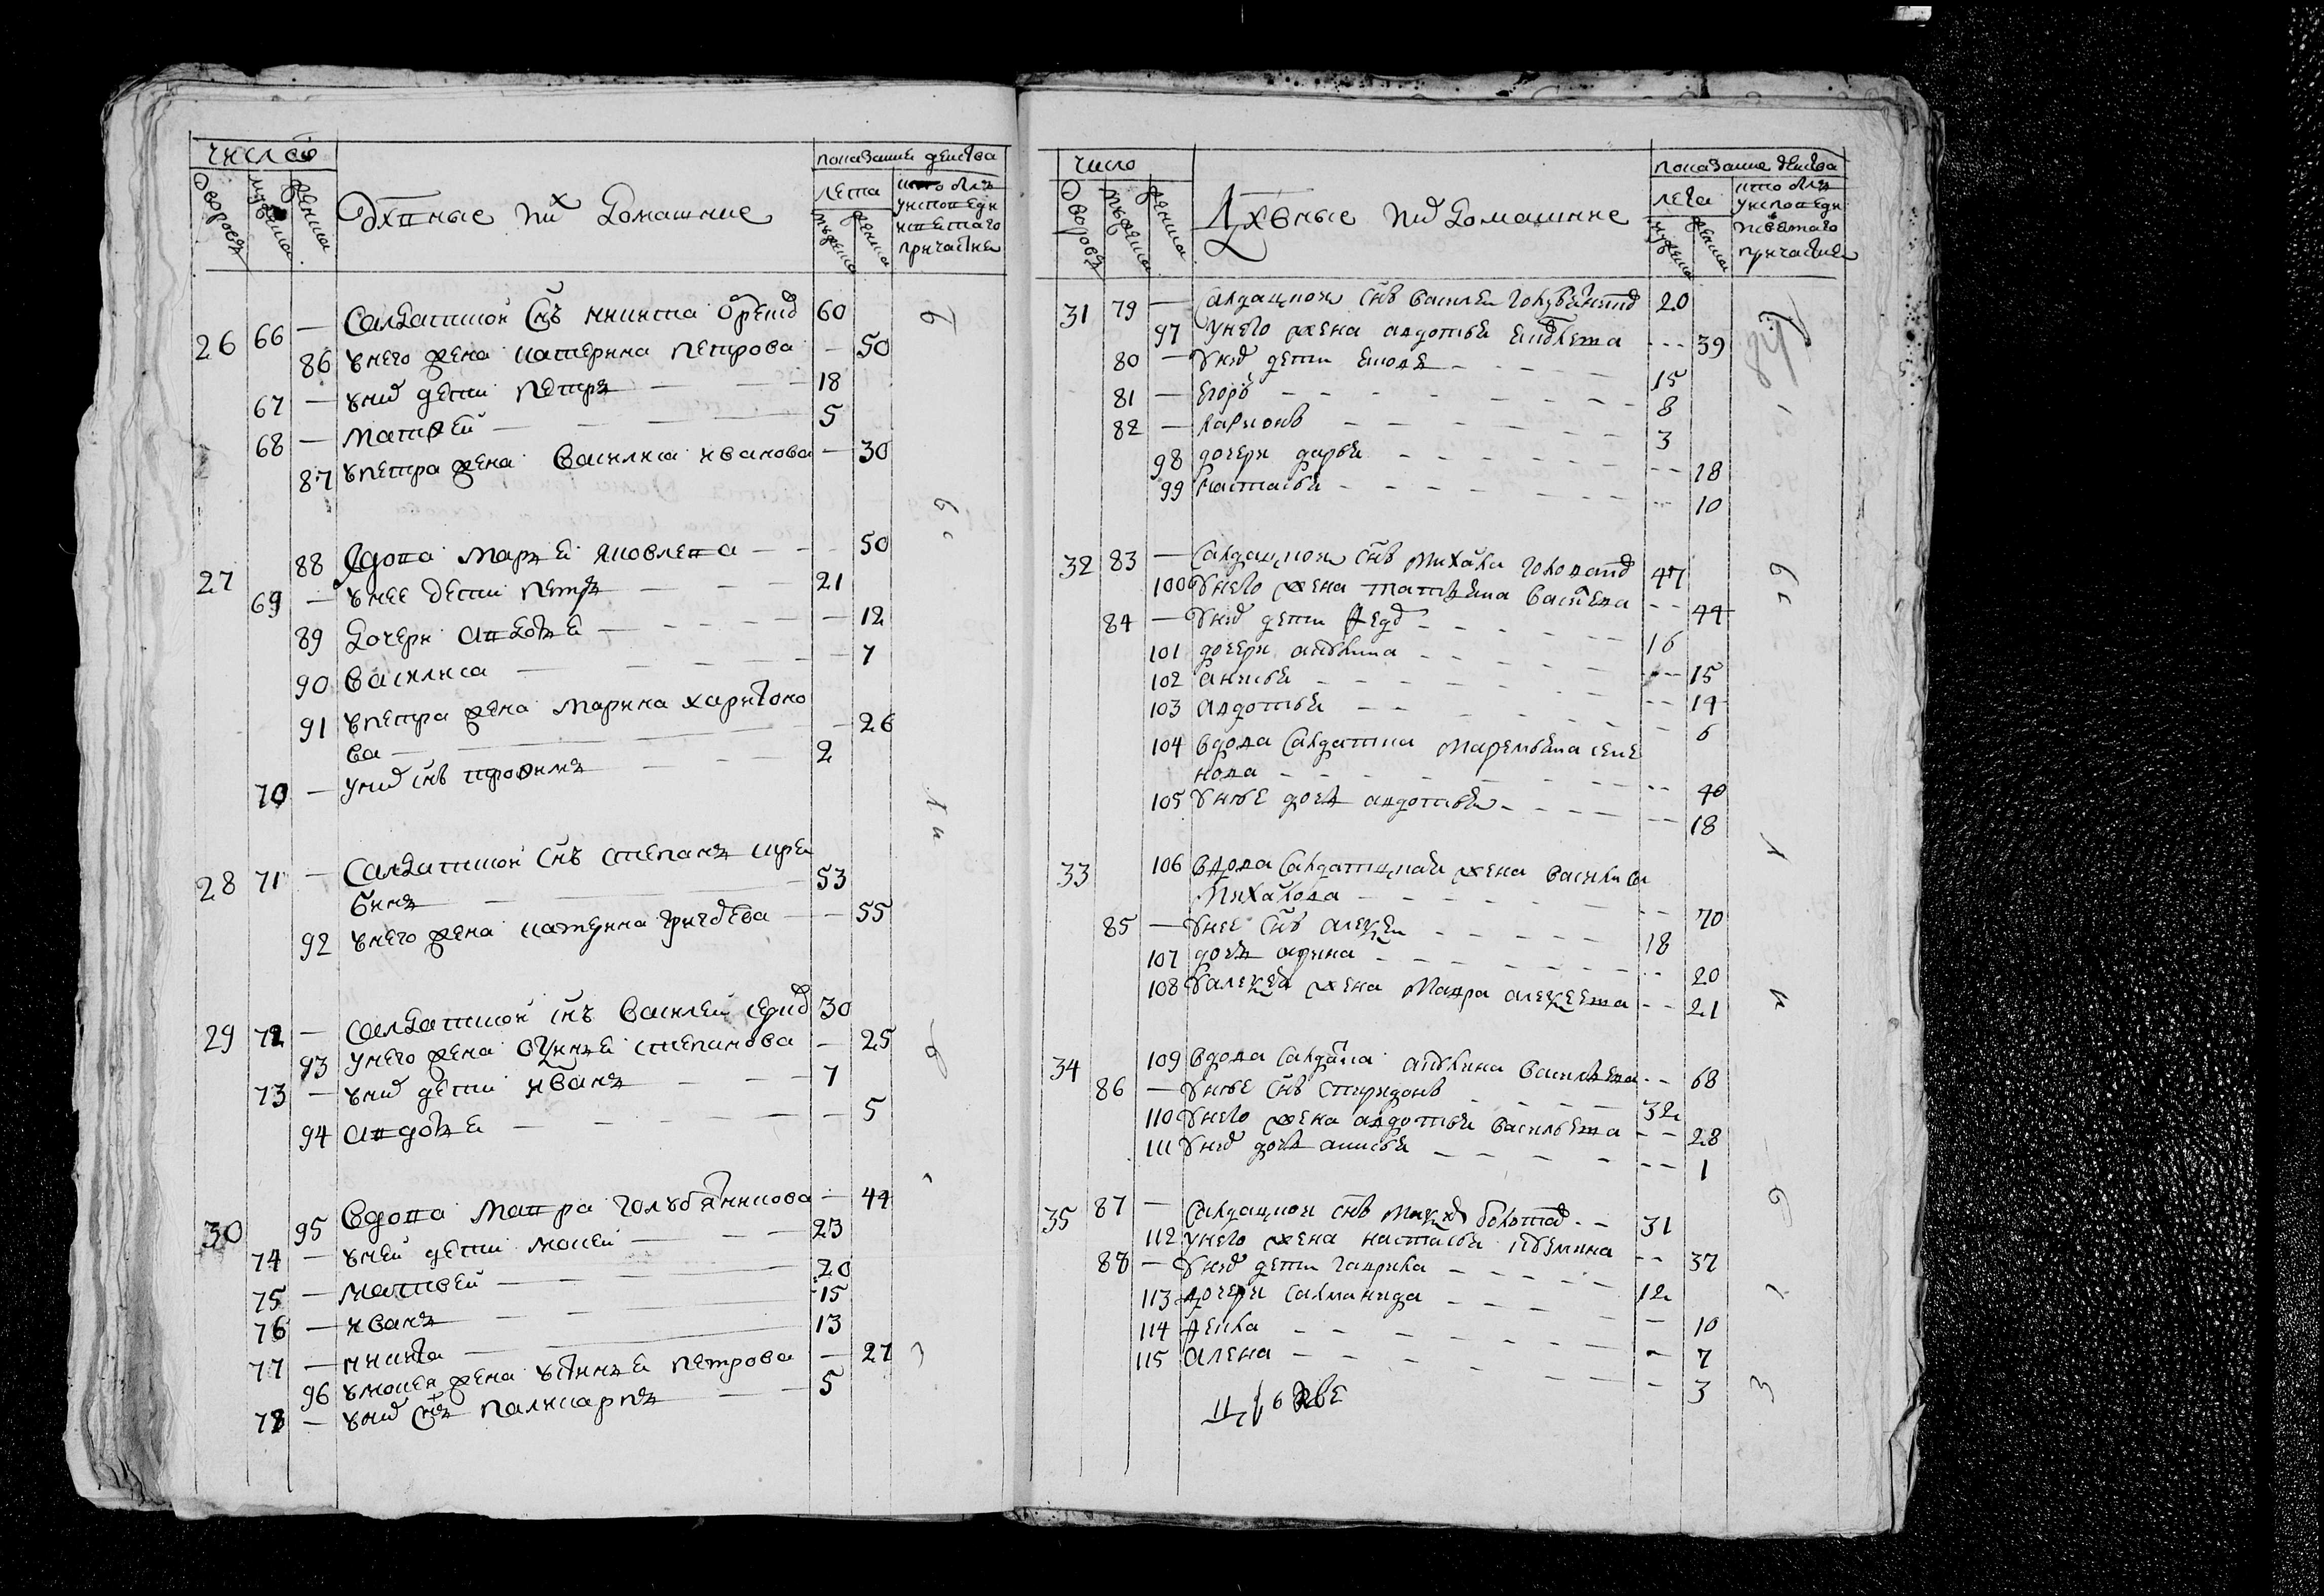 число
показание действа
дворовъ
мужеска
женска
Духовные и их домашние
лета
мужеска
женска
кто былъ
у исповеди
и святаго
причастия
26 66 — Салдатской снъ никита 60
86 У него жена катерина петрова — 50
67 — У них дети петръ — 18
68 — матфей — 5
87 У петра жена василиса иванова — 30
27 88 Вдова марья яковлева — 50
69 — У нее дети петръ — 21
89 Дочери авдотья — 12
90 василиса — 7
91 У петра жена марина харитоно
ва — 26
70 — У них снъ трофимъ — 2
28 71 — Салдатской снъ степанъ
53
92 У него жена катерина — 55
29 72 — Салдатской снъ василей 30
93 У него жена степанова — 25
73 — У них дети иванъ — 7
94 авдотья — 5
30 95 Вдова мавра голубятникова — 44
74 — У ней дети 23
75 — матвей — 20
76 — иванъ — 15
77 — никита — 13
96 жена устинья петрова — 27
78 — У них снъ поликарпъ — 5
число
показание действа
дворовъ
мужеска
женска
Духовные и их домашние
лета
мужеска
женска
кто былъ
у исповеди
и святаго
причастия
31 79 — Салдацкой снъ василей голубятников 20
97 У него жена авдотья — 39
80 — У них дети — 15
81 — егоръ — 8
82 — ларионъ — 3
98 дочери дарья — 18
99 настасья — 10
32 83 — Салдацкой снъ михайла 47
100 У него жена татьяна васильева — 44
84 — У них дети федоръ — 16
101 дочери акулина — 15
102 анисья — 14
103 авдотья — 6
104 вдова салдатка маремьяна семе
нова — 40
105 У нее дочь авдотья — 18
33 106 вдова салдатская жена василиса
михайлова — 70
85 — У нее снъ алексей — 18
107 дочь арина — 20
108 У алексея жена мавра алексеева — 21
34 109 вдова салдатка акулина васильева — 68
86 — У нее снъ спиридонъ — 32
110 У него жена авдотья васильева — 28
111 У них дочь анисья — 1
35 87 — Салдацкой снъ — 31
112 У него жена настасья кузмина — 37
88 — У них дети гаврила — 12
113 дочери саломанида — 10
114 фекла — 7
115 алена — 3